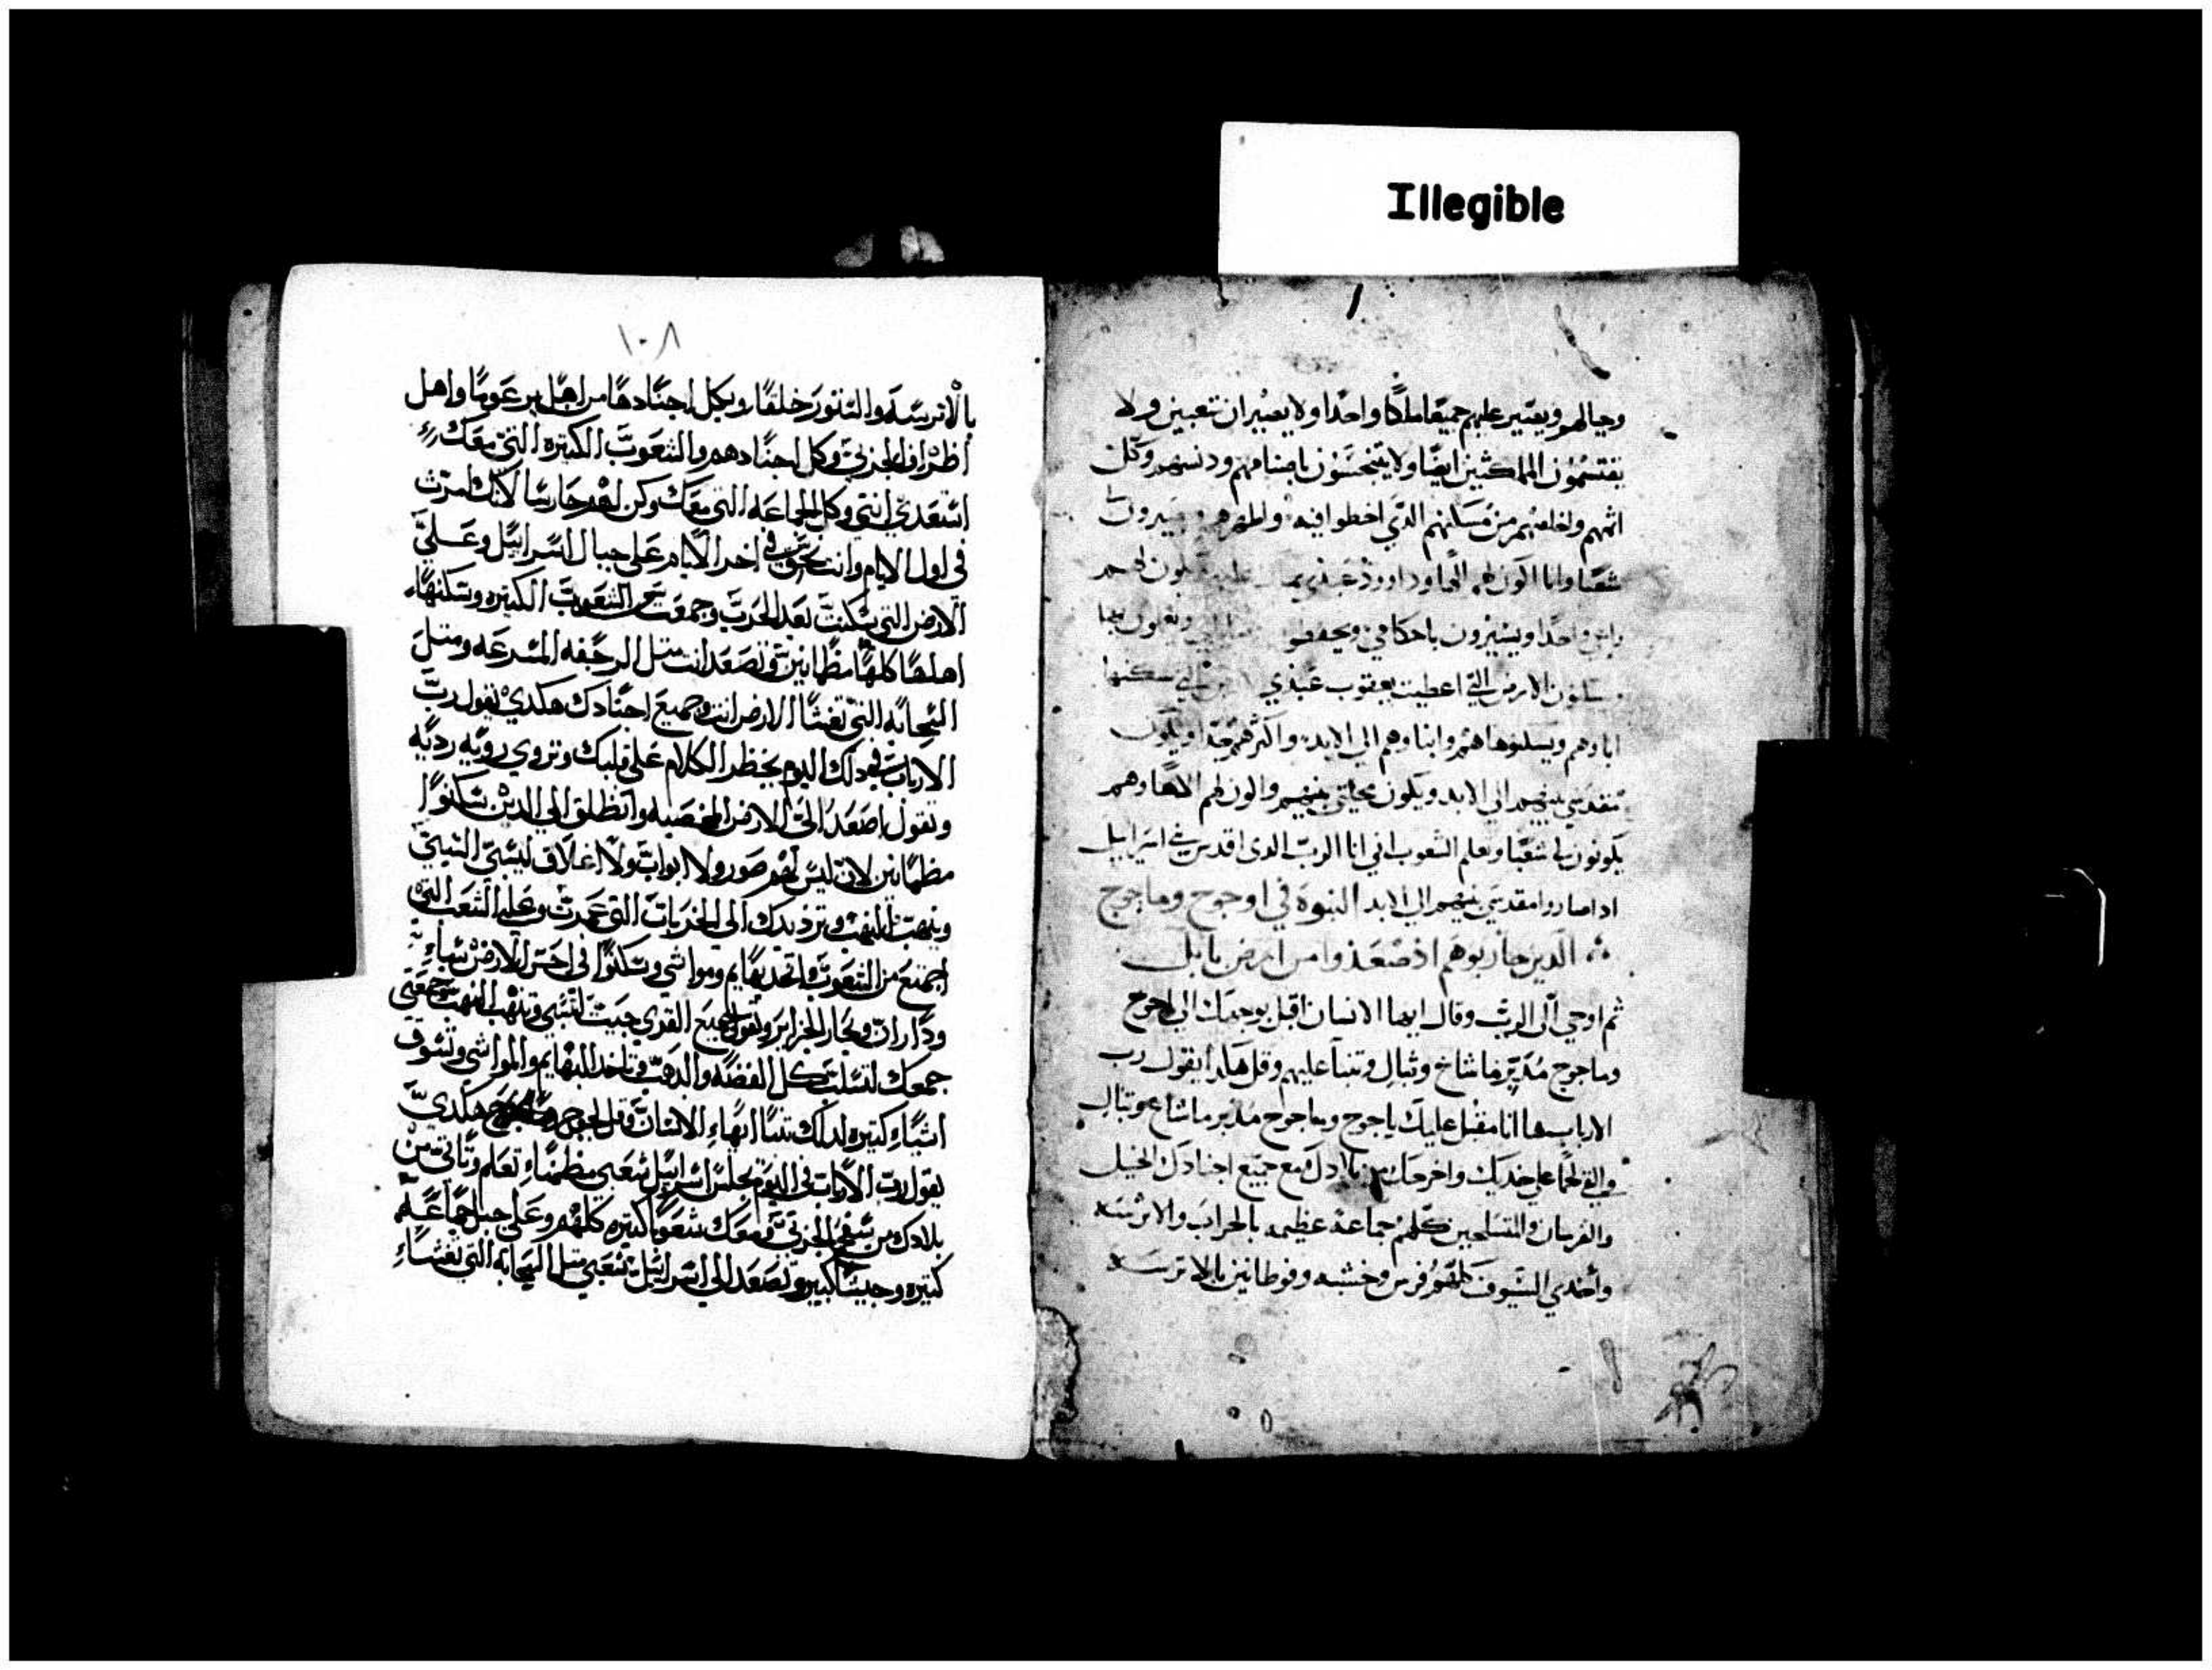 Illegible
وجبالهم ويصير عليهم جميعا ملكا واحدا ولا يصيران شعبين ولا
يقتسمون المملكتين ايضا ولا يتنجسون باصنامهم ودنسهم وكل
اثمهم واخلصهم من مساكنهم الذي اخطوا فيه واطهرهم ويصيرون
شعبا وانا اكون لهم الها وداوود عبدي يملك عليهم يكون لهم
راعي واحدا ويسيرون باحكامي ويحفظو ويعملون بها
الارض التي اعطيت يعقوب عبدي التي سكنها
اباوهم ويسكنوها هم وابناوهم الى الابد واكثرهم جدا ويكون
مقدسي بينهم الى الابد ويكون محلتي بينهم واكون لهم الاها وهم
يكونون لي شعبا وتعلم الشعوب اني انا الرب الدى اقدس بني اسراييل
اذا صاروا مقدسي بينهم الى الابد النبوة في اوجوج وماجوج
الذين حاربوهم اذ صعدوا من ارض بابل
ثم اوحي الى الرب وقال ايها الانسان اقبل بوجهك الى اجوج
وماجوج مدبر ماشاخ وثبال وتنبا عليهم وقل هكذا يقول رب
الارباب ها انا مقبل عليك ياجوج وماجوج مدبر ماشاخ وتبال
والقي لجما على خديك واخرجك من بلادك مع جميع اجنادك الخيل
والفرسان والمتسلحين كلهم جماعة عظيمه بالحراب والاترسه
واخدي السيوف كلهم فرس وحبشه وفوطانين بالاترسه
١٠٨
بالاترسه والتنتور خلفا وبكل اجنادها من اهل برعوما واهل
اطراف الجربي وكل اجنادهم والشعوب الكتيره التي معك
استعدي انتي وكل الجماعه التي معك وكن لهم حارسا لانك امرت
في اول الايام وانت تحتى في اخر الايام على جبال اسراييل وعلى
الارض التي سكنت بعد الحرب وجمعت من الشعوب الكتيره وسكنها
اهلها كلها مطمانين وتصعد انت متل الرجفه المسرعه ومتل
السحابه التي تغشا الارض انت وجميع اجنادك هكدي يقول رب
الارباب في دلك اليوم يخطر الكلام على قلبك وتروي رويه رديه
وتقول اصعد الى الارض الخصبه وانطلق الى الدين سكنوا
مطمانين لان ليس لهم صور ولا ابواب ولا اغلاق ليسبي السبي
وينهب النهب وترد يدك الى الخربات التي عمرت وعلى الشعب التي
اجتمع من الشعوب واتخد بهايم ومواشي وسكنوا في احسن الارض سباء
وداران وتجار الجزاير وتقول لجميع القري جيت لتسبي وتنهب النهب جمعتي
جمعك لتسلب كل الفضه والدهب وتاخد البهايم والمواشي وتسوق
اشياء كتيره لدلك تنبا ايها الانسان وقل لجوج وماجوج هكدي
يقول رب الارباب في اليوم يجلس اسراييل شعبي مطمنا تعلم وتاتي من
بلادك من سفح الجربي ومعك شعوبا كتيره كلهم وعلى خيل جماعه
كتيره وجيشا كبير وتصعد الى اسراييل شعبي متل السحابه التي تغشا